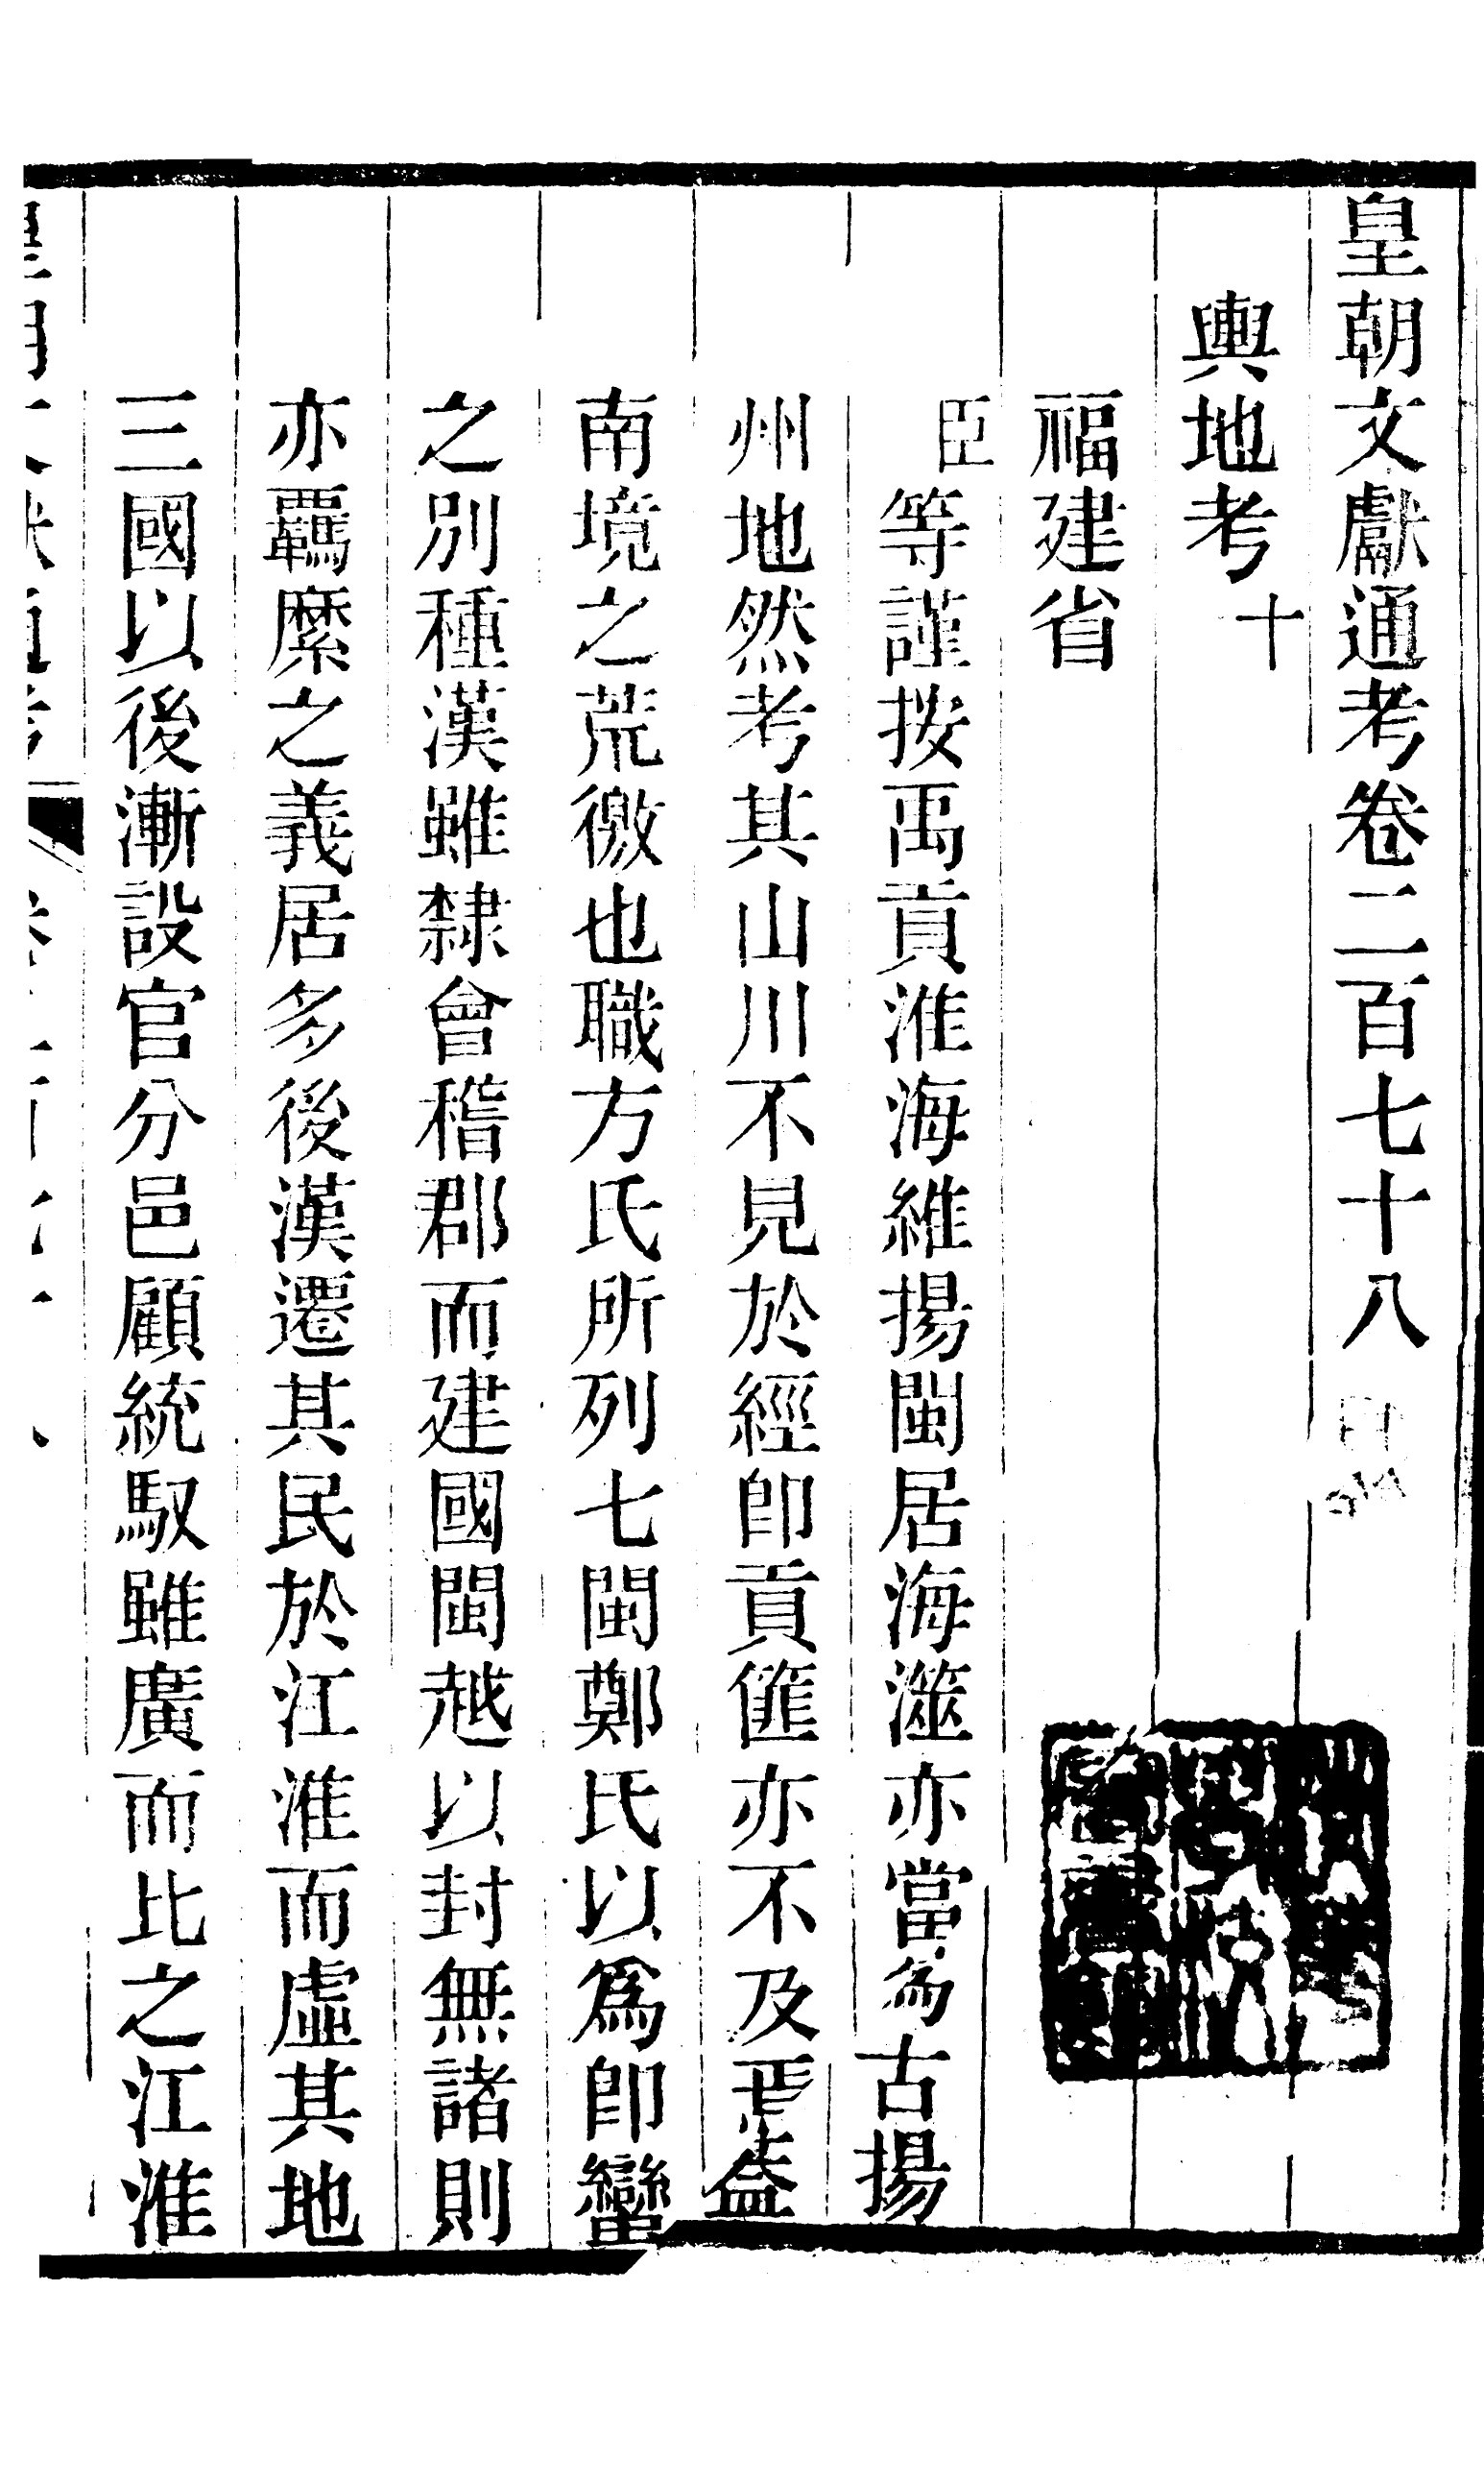 皇朝文獻通考卷二百七十八
輿地考十
福建省
臣等謹按禹貢淮海維揚閩居海澨亦當為古揚
州地然考其山川不見於經即貢篚亦不及焉蓋
南境之荒徼也職方氏所列七閩鄭氏以爲即蠻
之別種漢雖隸會稽郡而建國閩越以封無諸則
亦羈縻之義居多後漢遷其民於江淮而虛其地
三國以後漸設官分邑顧統馭雖廣而比之江淮